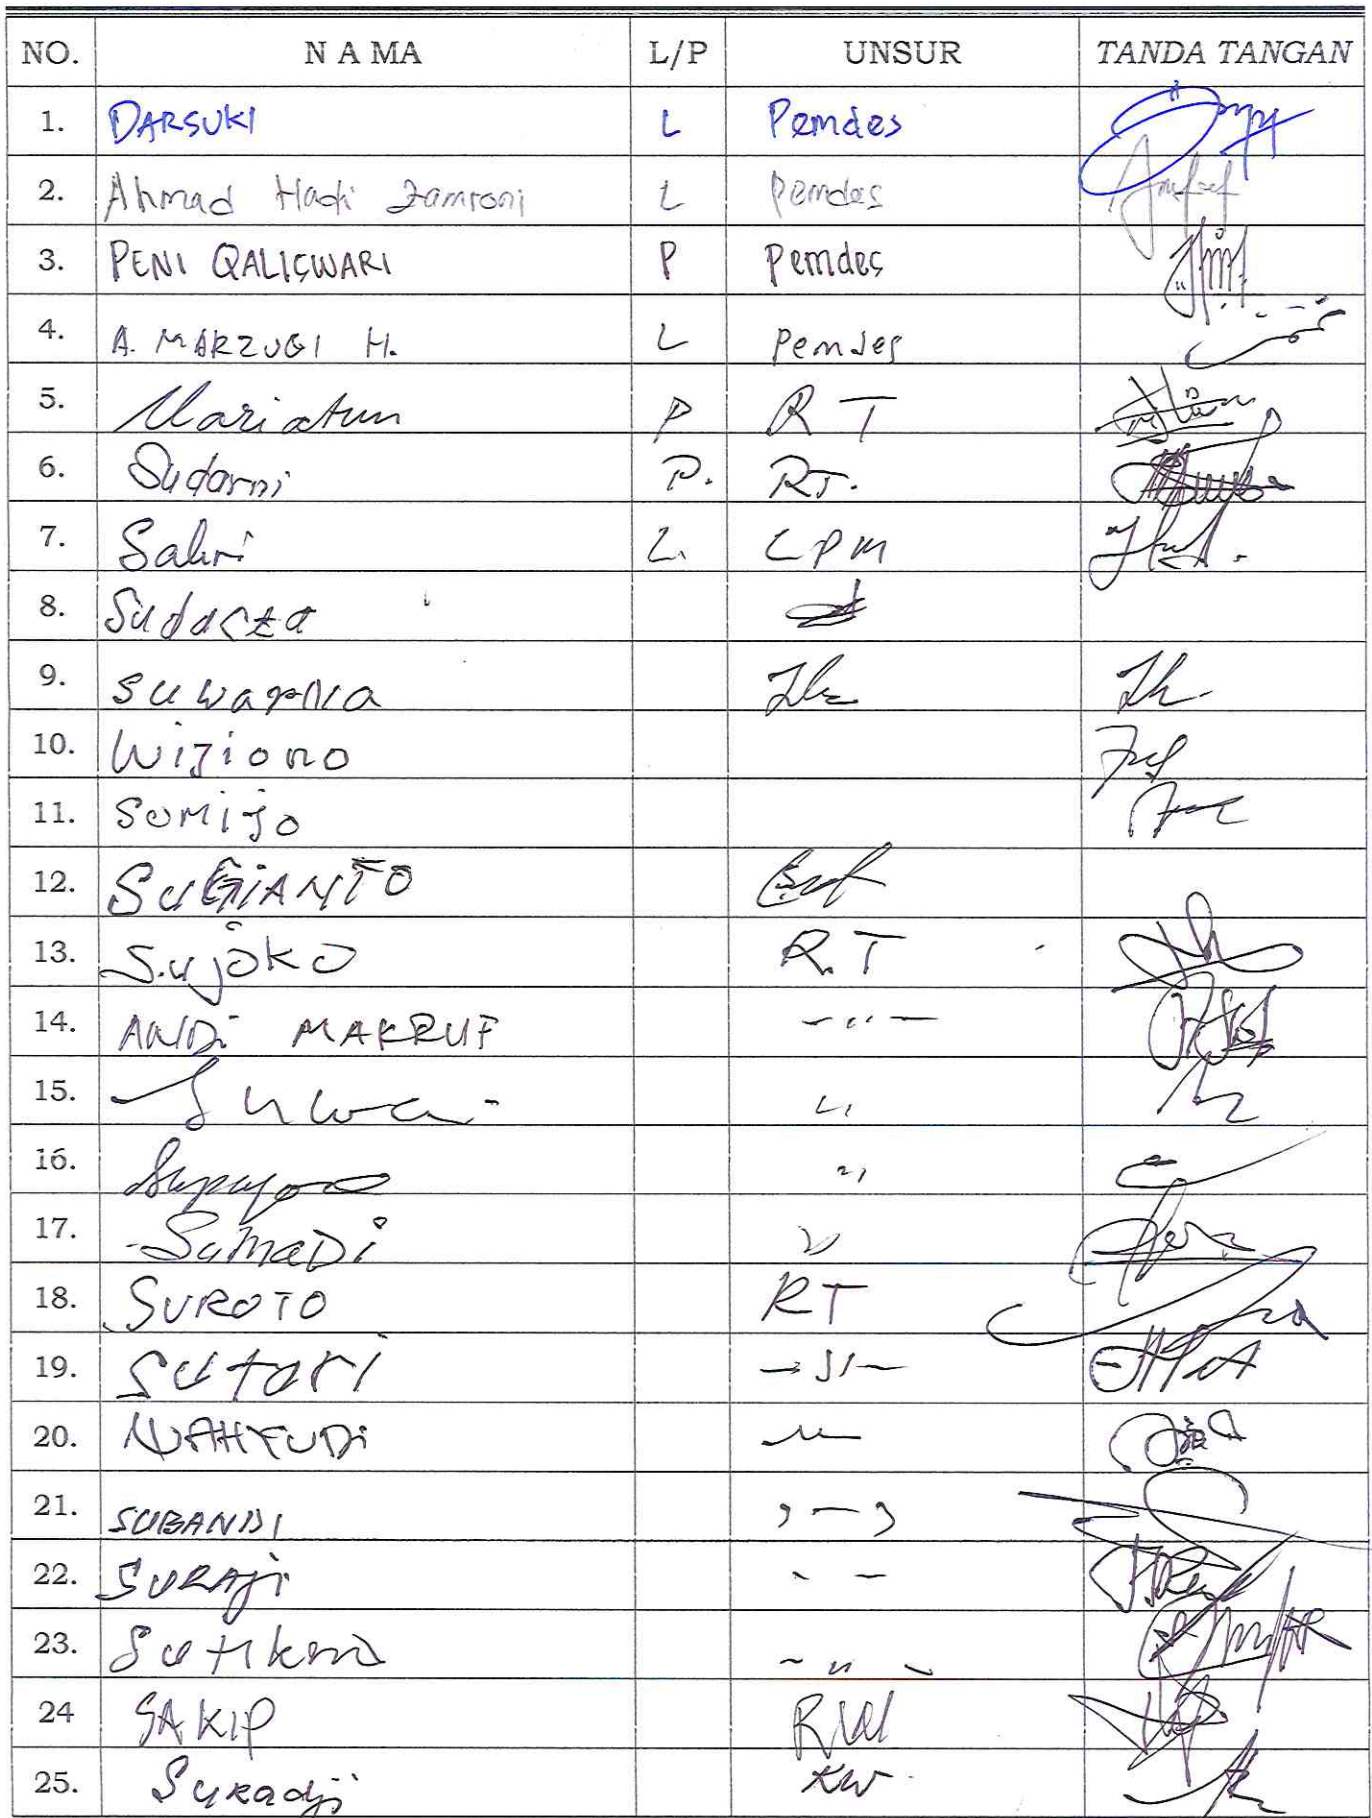 NO. N A M A L/P UNSUR TANDA TANGAN
1. DARSUKI L Pemdes
2. Ahmad Hadi Zamroni L Pemdes
3. PENI QALISWARI P Pemdes
4. A. MARZUGI H. L Pemdes
5. Mariatun P R T
6. Sudarmi P. RT.
7. Sahri L. LPM
8. Sudasta
9. Suwarna
10. Wijiono
11. SUMIJO
12. SUGIANTO
13. Sujoko R.T
14. ANDi MAKRUF - " -
15. "
16. "
17. SUMADi "
18. SUROTO RT
19. SUTARI - " -
20. WAHYUDi
21. SUBANDI
22. SURAJi
23. - " -
24 SAKIP RW
25. Suradji RW